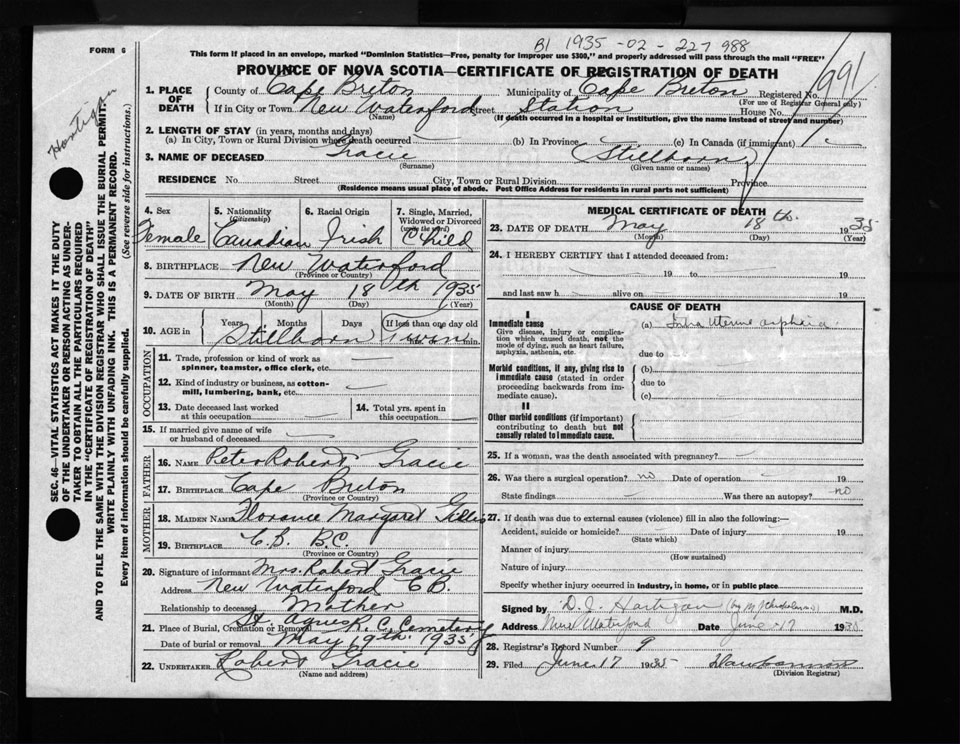 FORM 6
B1 1935-02-227 988
This form if placed in an envelope, marked "Dominion Statistics—Free, penalty for improper use $300," and properly addressed will pass through the mail "FREE"
PROVINCE OF NOVA SCOTIA—CERTIFICATE OF REGISTRATION OF DEATH
991
Hartigan
1. PLACE OF DEATH
County of Cape Breton Municipality of Cape Breton Registered No.
(For use of Registrar General only)
If in City or Town New Waterford Street Station House No.
(Name) (If death occurred in a hospital or institution, give the name instead of street and number)
2. LENGTH OF STAY (in years, months and days)
(a) In City, Town or Rural Division where death occurred (b) In Province (c) In Canada (if immigrant)
3. NAME OF DECEASED Gracie Stillborn
(Surname) (Given name or names)
RESIDENCE No. Street City, Town or Rural Division Province
(Residence means usual place of abode. Post Office Address for residents in rural parts not sufficient)
4. Sex Female
5. Nationality (Citizenship) Canadian
6. Racial Origin Irish
7. Single, Married, Widowed or Divorced (write the word) Child
8. BIRTHPLACE New Waterford
(Province or Country)
9. DATE OF BIRTH May 18th 1935
(Month) (Day) (Year)
10. AGE in Years Months Days If less than one day old
Stillborn min.
OCCUPATION
11. Trade, profession or kind of work as spinner, teamster, office clerk, etc.
12. Kind of industry or business, as cotton-mill, lumbering, bank, etc.
13. Date deceased last worked at this occupation
14. Total yrs. spent in this occupation
15. If married give name of wife or husband of deceased
FATHER
16. NAME Peter Robert Gracie
17. BIRTHPLACE Cape Breton
(Province or Country)
MOTHER
18. MAIDEN NAME Florance Margaret Gillis
19. BIRTHPLACE C.B. B.C.
(Province or Country)
20. Signature of informant Mrs. Robert Gracie
Address New Waterford C.B.
Relationship to deceased Mother
21. Place of Burial, Cremation or Removal St. Agnes R. C. Cemetery
Date of burial or removal May 19th 1935
22. UNDERTAKER Robert Gracie
(Name and address)
MEDICAL CERTIFICATE OF DEATH
23. DATE OF DEATH May 18th 1935
(Month) (Day) (Year)
24. I HEREBY CERTIFY that I attended deceased from:
19 to 19
and last saw h alive on 19
CAUSE OF DEATH
I
Immediate cause
Give disease, injury or complication which caused death, not the mode of dying, such as heart failure, asphyxia, asthenia, etc.
(a) Intra Uterine
due to
Morbid conditions, if any, giving rise to immediate cause (stated in order proceeding backwards from immediate cause).
(b)
due to
(c)
II
Other morbid conditions (if important) contributing to death but not causally related to immediate cause.
25. If a woman, was the death associated with pregnancy?
26. Was there a surgical operation? no Date of operation 19
State findings Was there an autopsy? no
27. If death was due to external causes (violence) fill in also the following:—
Accident, suicide or homicide? Date of injury 19
(State which)
Manner of injury
(How sustained)
Nature of injury
Specify whether injury occurred in industry, in home, or in public place
Signed by D. J. Hartigan M.D.
Address New Waterford Date June 17 1935
28. Registrar's Record Number 9
29. Filed June 17 1935
(Division Registrar)
SEC. 46—VITAL STATISTICS ACT MAKES IT THE DUTY
OF THE UNDERTAKER OR PERSON ACTING AS UNDER-
TAKER TO OBTAIN ALL THE PARTICULARS REQUIRED
IN THE "CERTIFICATE OF REGISTRATION OF DEATH"
AND TO FILE THE SAME WITH THE DIVISION REGISTRAR WHO SHALL ISSUE THE BURIAL PERMIT.
WRITE PLAINLY WITH UNFADING INK. THIS IS A PERMANENT RECORD.
Every item of information should be carefully supplied. (See reverse side for instructions.)